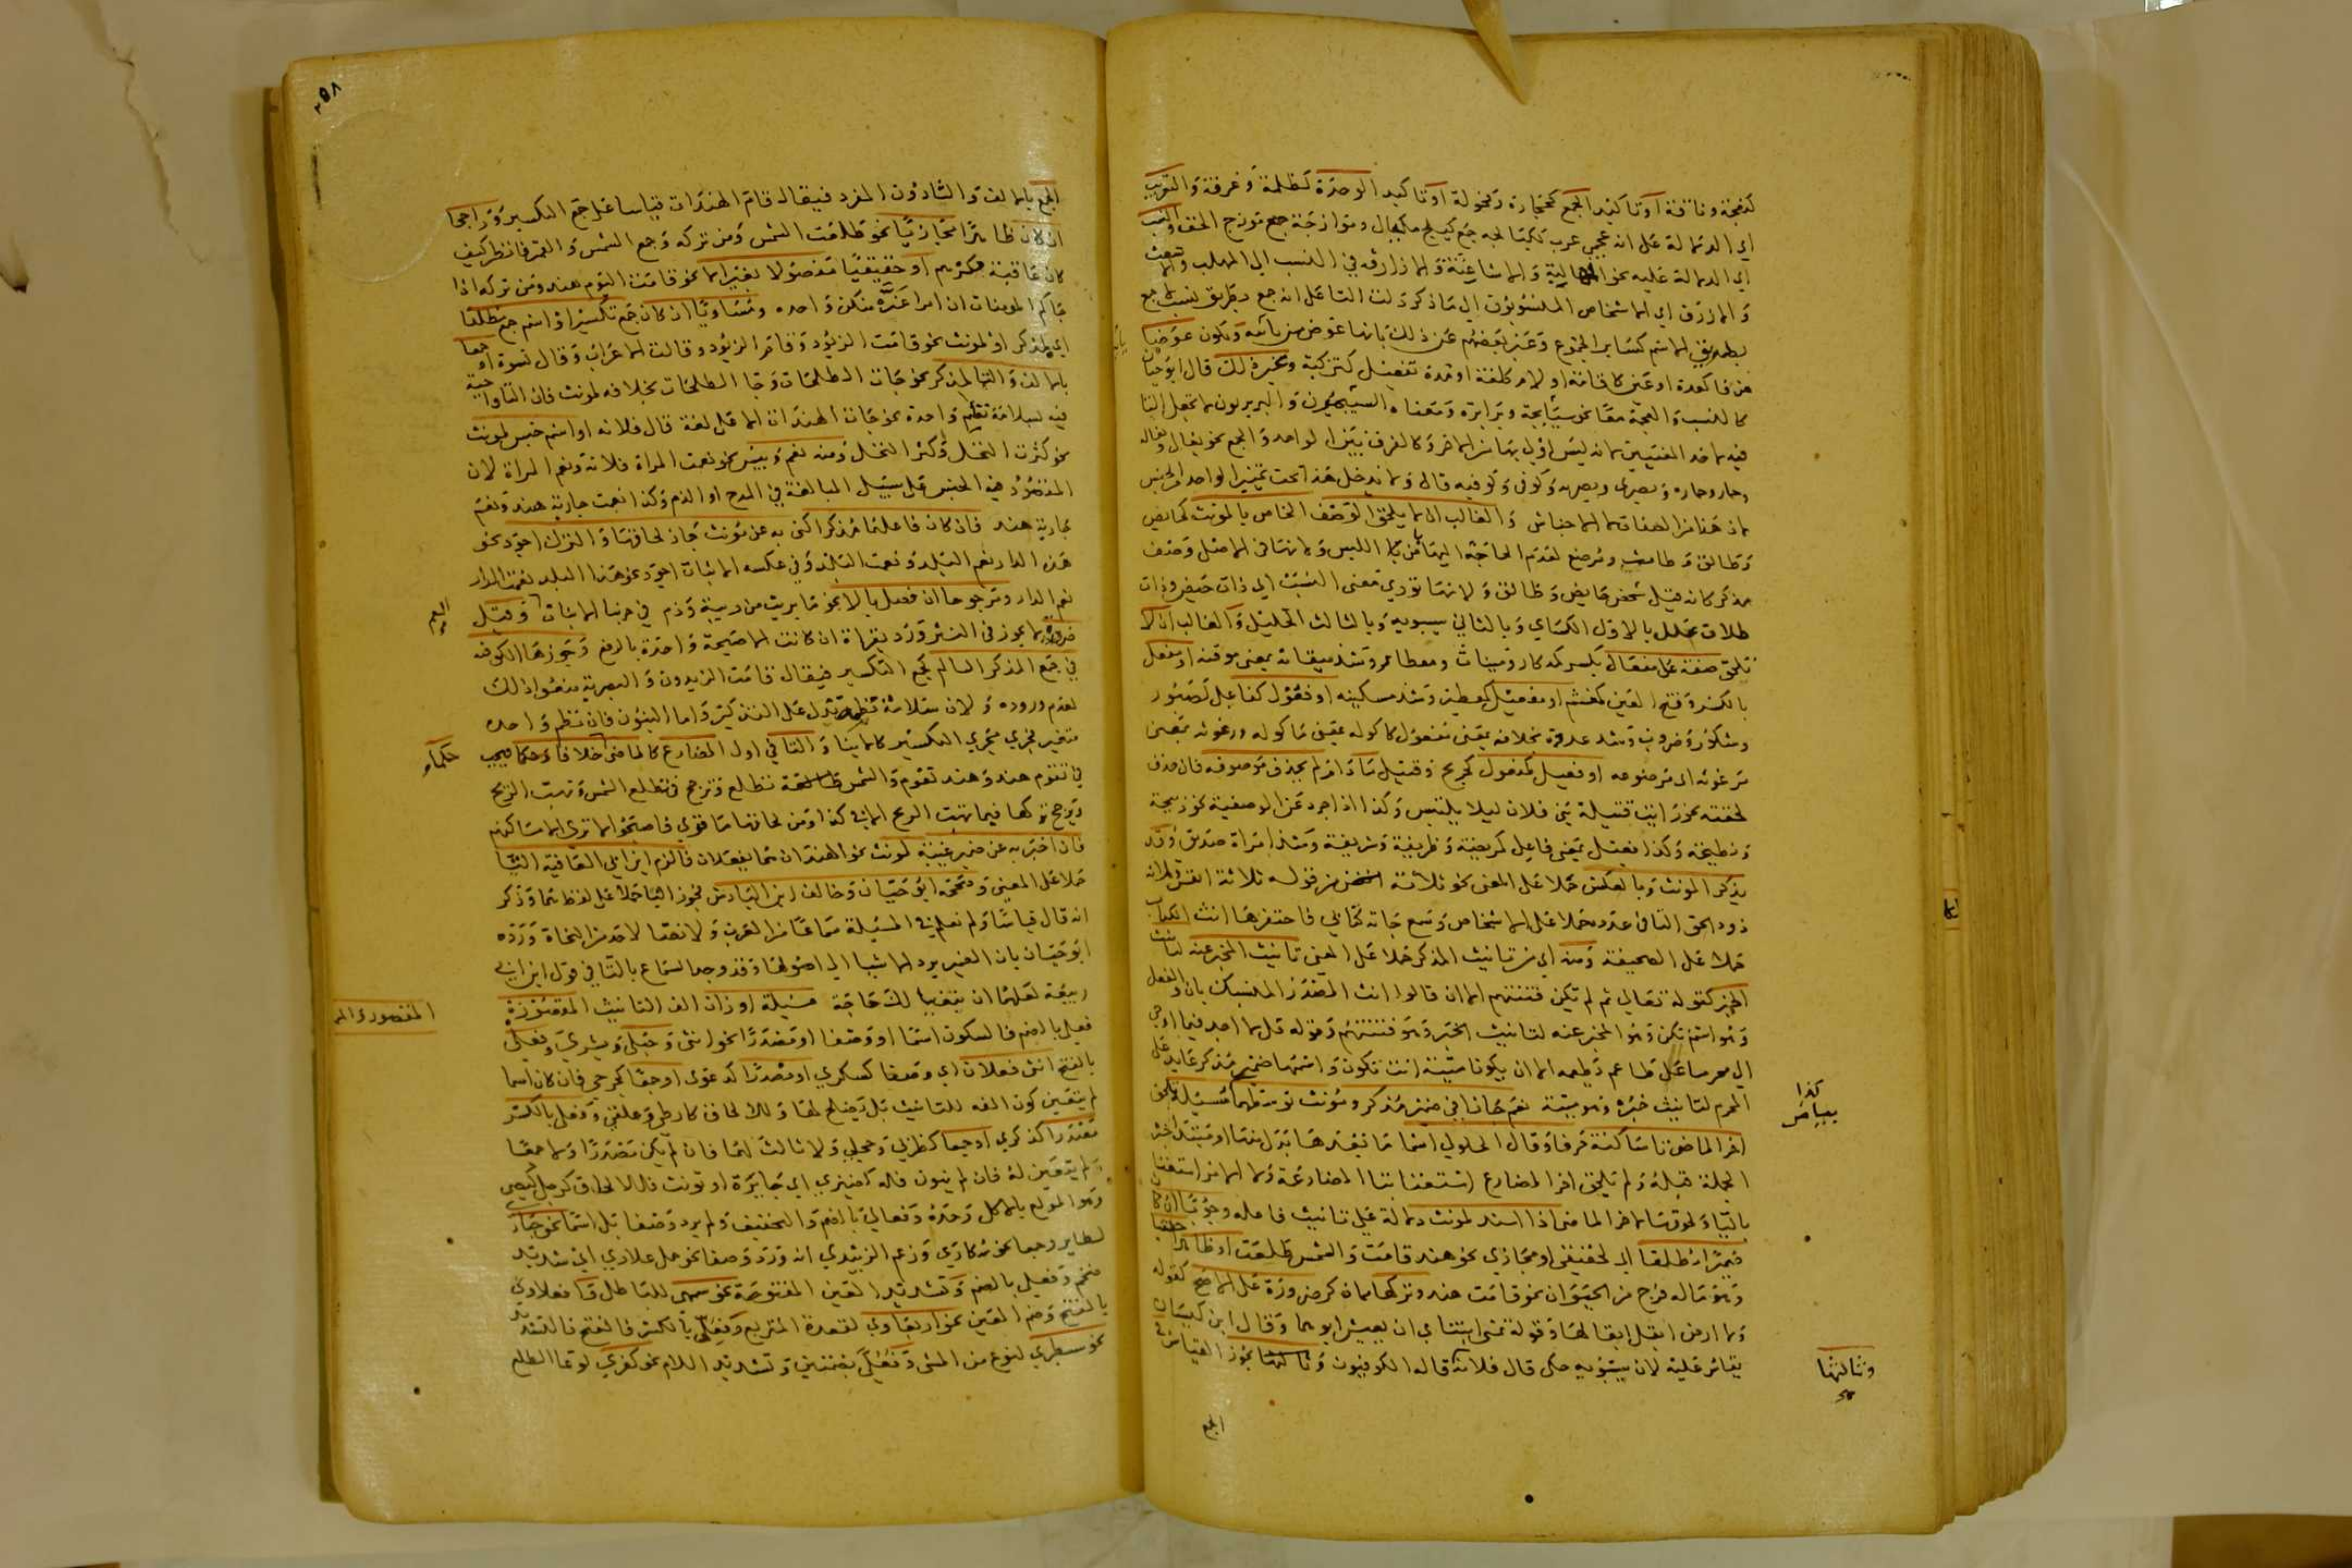 كنعجة وناقة او تاكيد الجمع كحجارة وفحولة او تاكيد الوحدة كظلمة وغرفة والتعريب
اي الدلالة على انه عجمي عرب ككيالجة جمع كيلج مكيال وموازجة جمع موزج الخف والنسب
اي الدلالة عليه نحو المهالبة والاشاعثة والازارقة في النسب الى المهلب والاشعث
والازرق اي الاشخاص المنسوبون الى ما ذكر دلت التا على انه جمع بطريق النسب لا جمع
بطريق الاسم كساير الجموع وعبر بعضهم عن ذلك بانها عوض من يائه وتكون عوضا
من فا كعدة او عين كاقامة او لام كلغة او مدة تفعيل كتزكية وغير ذلك قال ابو حيان
كالنسب والعجمة معا نحو سيابجة وبرابرة ومعناه السيبجيون والبربريون
وحمار وحمارة وبصري وبصرية وكوفي وكوفية قال
لان هذا من الصفات لا الاجناس والغالب ان لا يلحق الوصف الخاص بالمونث كحايض
وطالق وطامث ومرضع لعدم الحاجة اليها بامن اللبس ولانها في الاصل وصف
مذكر كانه قيل شخص حايض وطالق ولانها تودي معنى النسب اي ذات حيض وذات
طلاق علل بالاول الكساي وبالثاني سيبويه وبالثالث الخليل والغالب ان لا
تلحق صفة على مفعال بكسر كمذكار ومئناث ومعطار وشذ ميقانة بمعنى موقنة او مفعل
بالكسر وفتح العين كمغشم او مفعيل كمعطير وشذ مسكينة او فعول كفاعل كصبور
وشكور وضروب وشذ عدوة بخلافه بمعنى مفعول كاكولة بمعنى ماكولة ورغوثة بمعنى
مرغوثة اي مرضوعة او فعيل كمفعول كجريح وقتيل ما دام لم يحذف موصوفه فان حذف
لحقته نحو رايت قتيلة بني فلان ليلا يلتبس وكذا اذا جرد عن الوصفية نحو ذبيحة
ونطيحة وكذا فعيل بمعنى فاعل كمريضة وظريفة وشريفة وشذ امراة صديق وقد
يذكر المونث وبالعكس حملا على المعنى نحو ثلاثة انفس من قوله ثلاثة انفس وثلاث
ذود الحق التا في عدده حملا على الاشخاص وسمع جاته كتابي فاحتقرها انث الكتاب
حملا على الصحيفة ومنه اي من تانيث المذكر حملا على المعنى تانيث المخبر عنه لتانيث
الخبر كقوله تعالى ثم لم تكن فتنتهم الا ان قالوا انث المصدر المنسبك بان والفعل
وهو اسم تكن وهو المخبر عنه لتانيث الخبر وهو فتنتهم وقوله قل لا اجد فيما اوحي
الي محرما على طاعم يطعمه الا ان يكون ميتة انث تكون واسمها ضمير مذكر عايد على
المحرم لتانيث خبره وهو ميتة نعم جاز في ضمير مذكر ومونث توسطهما مسيلة تلحق
اخر الماضي تا ساكنة حرفا وقال الجلولي اسما ما بعدها بدل منها او مبتدا خبره
الجملة قبله ولم تلحق اخر المضارع استغناء بتا المضارعة ولا الامر استغناء
بالياء ولحوقها اخر الماضي اذا اسند لمونث دلالة على تانيث فاعله وجوبا ان كان
ضميرا مطلقا اي لحقيقي او مجازي نحو هند قامت والشمس طلعت او ظاهرا حقيقيا
وهو ما له فرج من الحيوان نحو قامت هند وتركها لان كر ضرورة على الاصح كقوله
ولا ارض ابقل ابقالها وقوله تمنى ابنتاي ان يعيش ابوهما وقال ابن كيسان
يقاس عليه لان سيبويه حكى قال فلانة قاله الكوفيون وثالثها يجوز القياس في
كذا
بيباض
وثالثها
صح
الجمع
٢٥٨
الجمع بالالف والتا دون المفرد فيقال قام الهندات قياسا على جمع التكسير وراجحا
ان كان ظاهرا مجازيا نحو طلعت الشمس ومن تركه وجمع الشمس والقمر فانظر كيف
كان عاقبة مكرهم او حقيقيا مفصولا بغير الا نحو قامت اليوم هند ومن تركه اذا
جاكم المومنات ان امرا غره منكن واحدة ومساويا ان كان جمع تكسير او اسم جمع مطلقا
اي لمذكر او لمونث نحو قامت الزيود وقام الزيود وقالت الاعراب وقال نسوة او جمعا
بالالف والتا لمذكر نحو جات الطلحات وجا الطلحات بخلافه لمونث فان التا واجبة
فيه لسلامة نظم واحده نحو جات الهندات الا على لغة قال فلانة او اسم جنس لمونث
نحو كثرت النخل وكثر النخل ومنه نعم وبيس نحو نعمت المراة فلانة ونعم المراة لان
المقصود فيه الجنس على سبيل المبالغة في المدح او الذم وكذا نعمت جارية هند ونعم
جارية هند فان كان فاعلها مذكرا كني به عن مونث جاز لحاقها والترك اجود نحو
هذه الدار نعم البلد ونعمت البلد وفي عكسه الاثبات اجود نحو هذا البلد نعمت الدار
نعم الدار ومرجوحا ان فصل بالا نحو ما بريت من ريبة وذم في حربنا الا بنات العم وقيل
ضرورة لا يجوز في النثر ورد بقراة ان كانت الا صيحة واحدة بالرفع وجوزها الكوفية
في جمع المذكر السالم كجمع التكسير فيقال قامت الزيدون والبصرية منعوا ذلك
لعدم وروده ولان سلامة نظمه تدل على التذكير واما البنون فان نظم واحده
متغير فجري مجري التكسير كالابنا والتا في اول المضارع كالماضي خلافا وحكما فيجب
في تقوم هند وهند تقوم والشمس طالعة تطلع وترجح في تطلع الشمس وتهب الريح
ويرجح تركها فيما تهب الريح الا في كذا ومن لحاقها ما قري فاصبحوا لا ترى الا مساكنهم
فان اخبر به عن ضمير غيبة لمونث نحو الهندان هما يفعلان فالزم ابن ابي العافية التا
حملا على المعنى وصححه ابو حيان وخالف ابن الباذش فجوز اليا حملا على لفظ هما وذكر
انه قال قياسا ولم نعلم في المسيلة سماعا من العرب ولا نصا لاحد من النحاة ورده
ابو حيان بان الضمير يرد الاشيا الى اصولها وقد وجد السماع بالتا في قول ابن ابي
ربيعة لعلهما ان يبغيا لك حاجة مسيلة اوزان الف التانيث المقصورة
فعلى بالضم فالسكون اسما او وصفا او مصدرا نحو انثى وحبلى وبشرى وفعلى
بالفتح انثى فعلان اي وصفا كسكرى او مصدرا كدعوى او جمعا كجرحى فان كان اسما
لم يتعين كون الفه للتانيث بل يصلح لها وللالحاق كارطى وعلقى وفعلى بالكسر
مصدرا كذكرى او جمعا كظربى وحجلى ولا ثالث لهما فان لم يكن مصدرا ولا جمعا
لم يتعين له فان لم ينون فله كضيزى اي جايرة او نونت فللالحاق كرجل كيصى
وهو المولع بالاكل وحده وفعالى بالضم والتخفيف ولم يرد وصفا بل اسما نحو حبارى
لطاير وجمعا نحو سكارى وزعم الزبيدي انه ورد وصفا نحو جمل علادى اي شديد
ضخم وفعلى بالضم وتشديد العين المفتوحة نحو سمهى للباطل وافعلاوى
بالفتح وضم العين نحو اربعاوى لقعدة المتربع وفعلى بالكسر فالفتح فالتشديد
نحو سبطرى لنوع من المشي وفعلى بضمتين وتشديد اللام نحو كفرى لوعا الطلع
العم
حكما
المقصورة